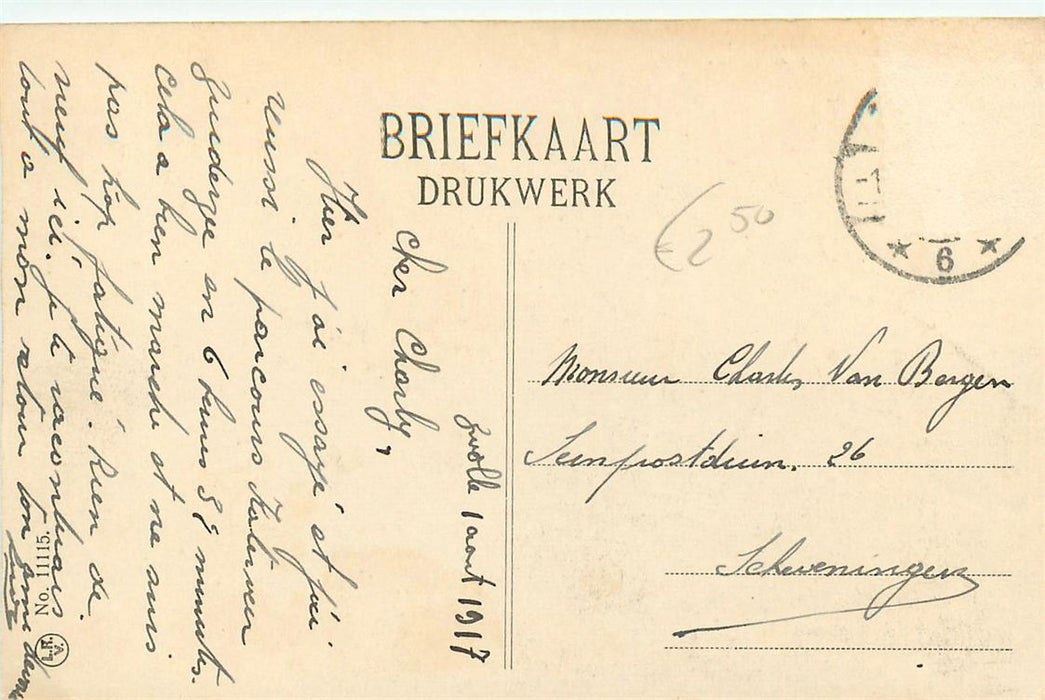 BRIEFKAART
DRUKWERK
€ 2 50
6
Zwolle 1 aout 1917
Cher Charly,
Hier j'ai essayé et j'ai
reussi le parcours
en 6 heures 58 minutes.
cela a bien marché et ne suis
pas trop fatigué. Rien de
neuf ici. je te raconterais
tout a mon retour ton ami
Monsieur Charles Van Bergen
Seinpostduin. 26
Scheveningen
No. 11115.